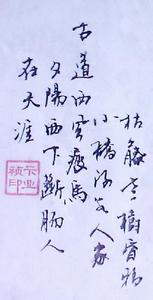 枯藤老樹昏鴉
小橋流水人家
古道西風瘦馬
夕陽西下斷腸人
在天涯